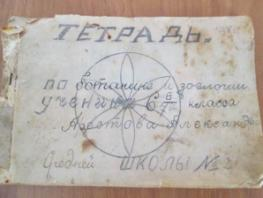 ТЕТРАДЬ.
по ботанике и зоологии
ученик 6 класса
Арестова Александ
Средней ШКОЛЫ № 2